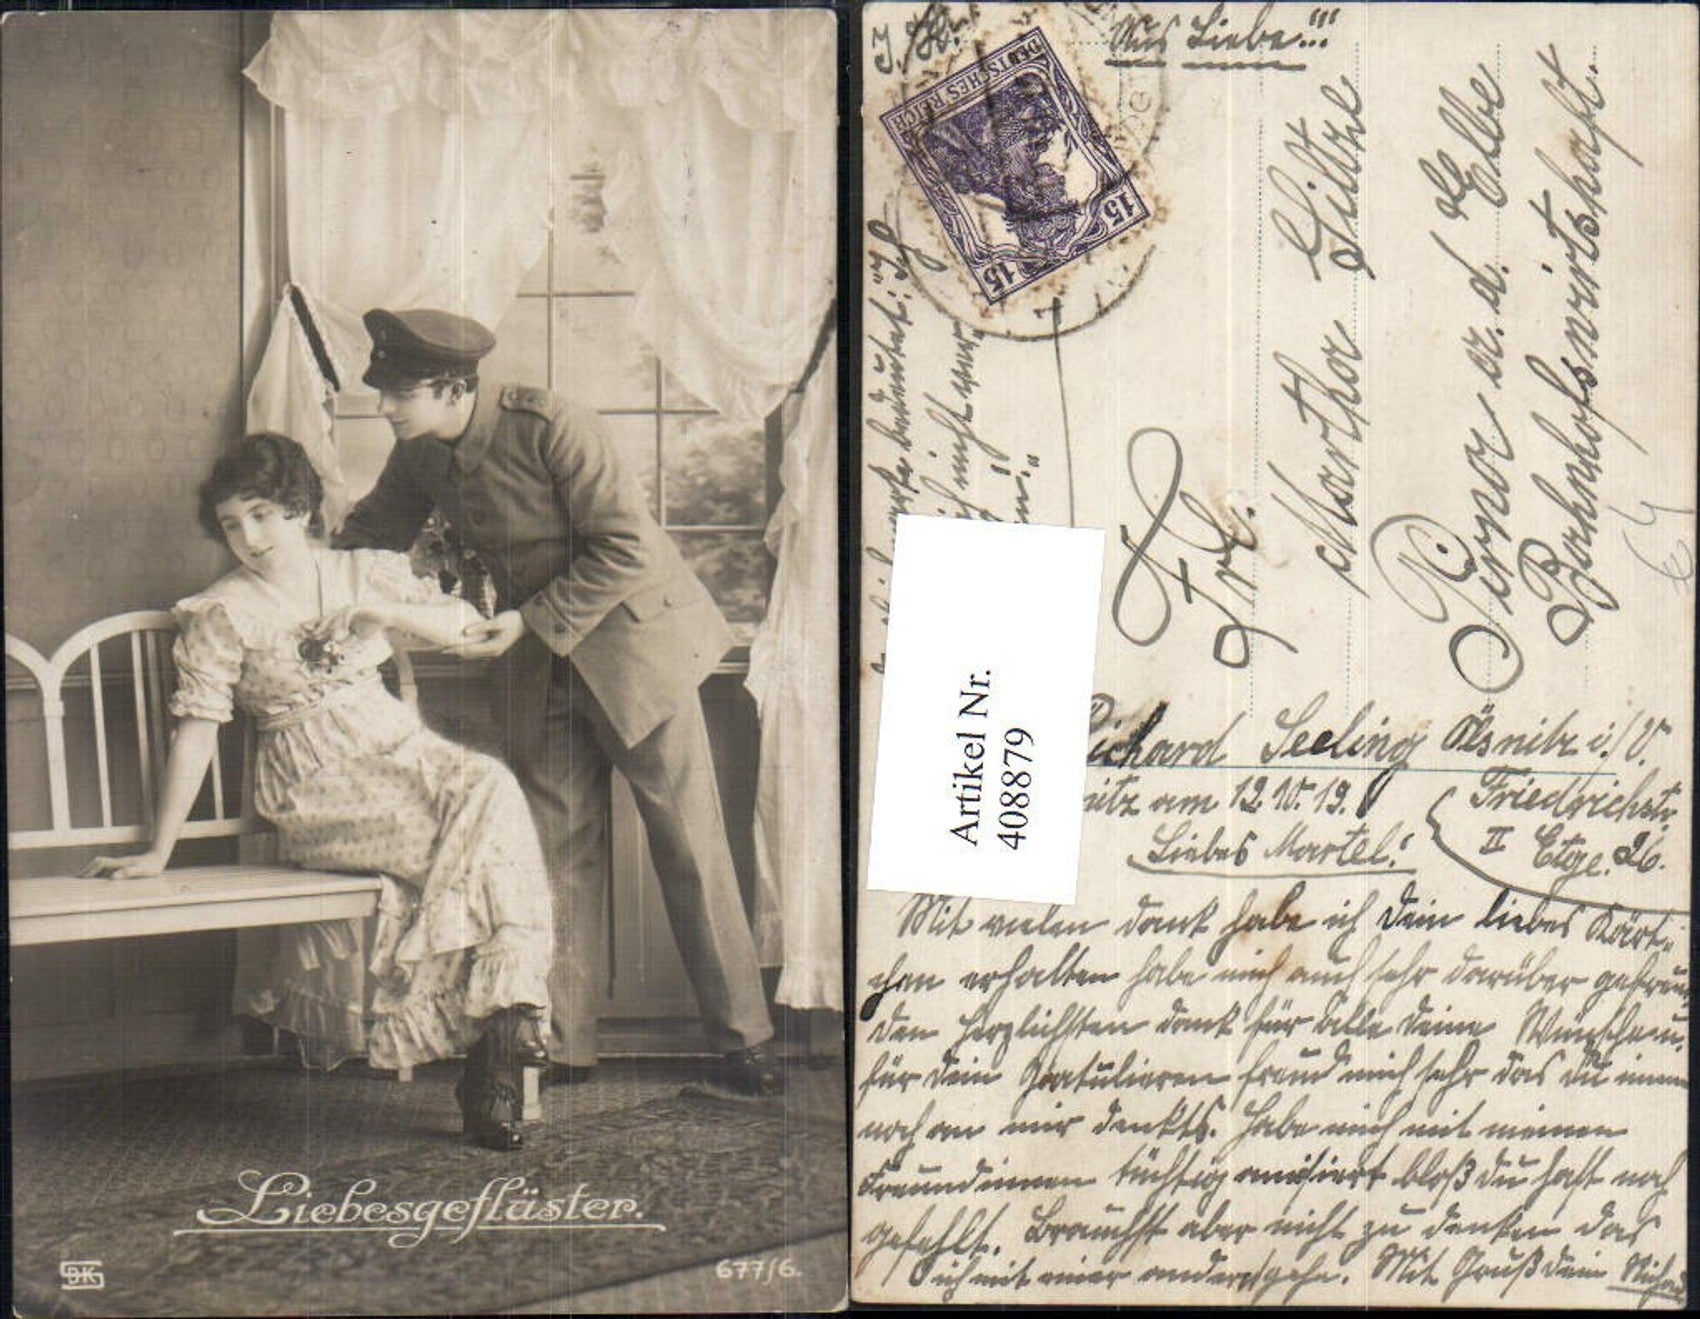 Liebesgeflüster.
677/6.
Aus Liebe!!!
DEUTSCHES REICH
15
15
Frl.
Martha
Pirna a. d. Elbe
Bahnhofswirtshaft.
Artikel Nr.
408879
Richard Seeling Ölsnitz i./V.
am 12.10.19.
Friedrichstr.
II Etge. 26.
Liebes Martel!
Mit vielen dank habe ich dein liebes Kärt-
chen erhalten habe mich auch sehr darüber gefreut
den herzlichsten dank für alle deine Wünsche u.
für dein Gratulieren freud mich sehr das du immer
noch an mir denkts. habe mich mit meinen
Freundinnen tüchtig amisiert bloß du hast noch
gefehlt. Brauchst aber nicht zu denken das
ich mit einer anderen gehe. Mit Gruß dein Richard